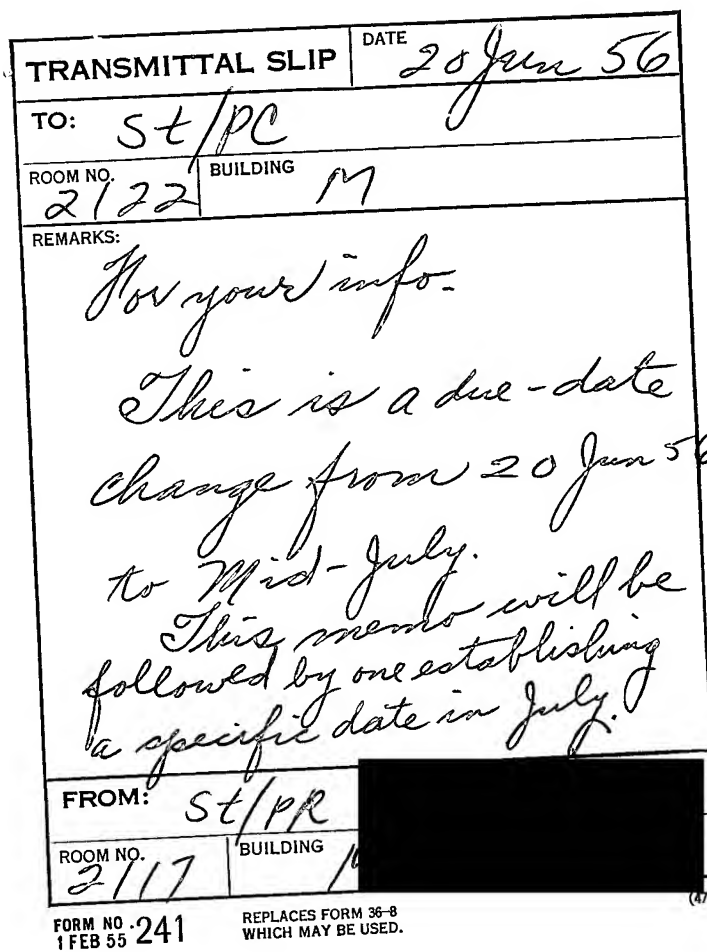 TRANSMITTAL SLIP
DATE 20 Jun 56
TO: St/PC
ROOM NO. 2122
BUILDING M
REMARKS:
For your info-
This is a due-date
change from 20 Jun 56
to Mid-July.
This memo will be
followed by one establishing
a specific date in July.
FROM: St/PR
ROOM NO. 2117
BUILDING
FORM NO. 241
1 FEB 55
REPLACES FORM 36-8
WHICH MAY BE USED.
(47